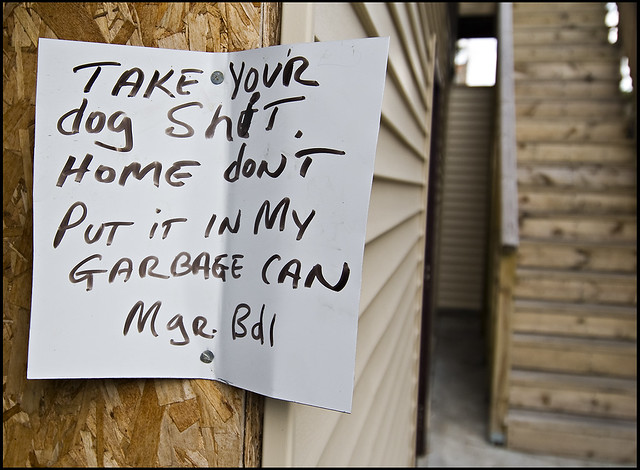 TAKE YOU'R
dog ShIT.
HOME dON'T
PUT iT IN MY
GARBAGE CAN
Mgr. Bdl